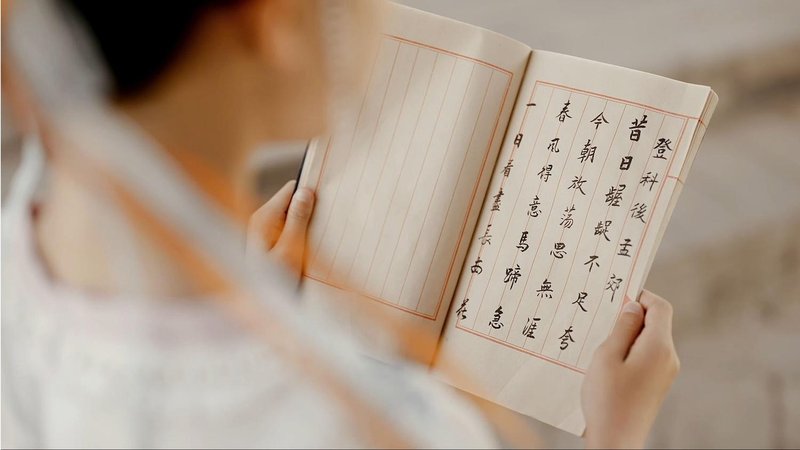 登科後孟郊
昔日齷齪不足夸
今朝放蕩思無涯
春風得意馬蹄急
一日看盡長安花